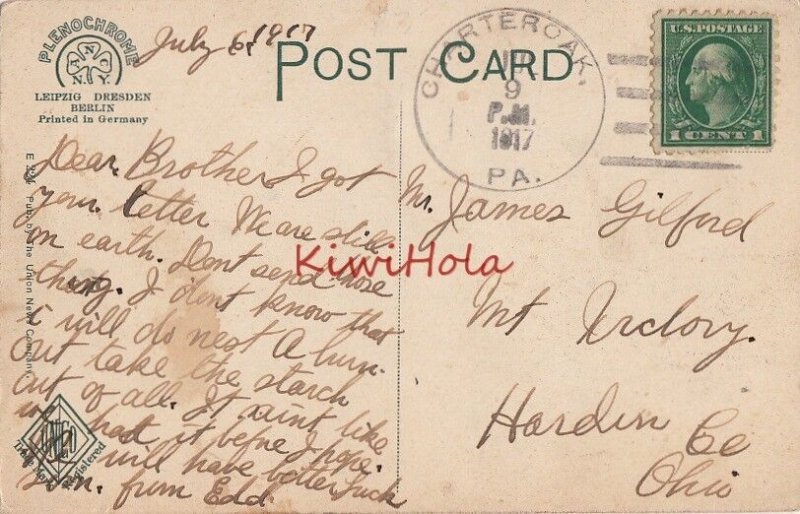 July 6, 1917
PLENOCHROME
ANC
N.Y.
LEIPZIG DRESDEN
BERLIN
Printed in Germany
POST CARD
CHARTEROAK,
9
P.M.
1917
PA.
U.S. POSTAGE
1 CENT 1
Dear Brother I got
your letter We are still
on earth. Dont send those
thing. I dont know that
I will do next A burn
out take the starch
out of all. It aint like
hat it before I hope
will have better luck
from Edd.
Mr. James Gilford
Mt Victory.
Hardin Co
Ohio
Pub. by The Union News Company.
Trade Mark Registered
KiwiHola